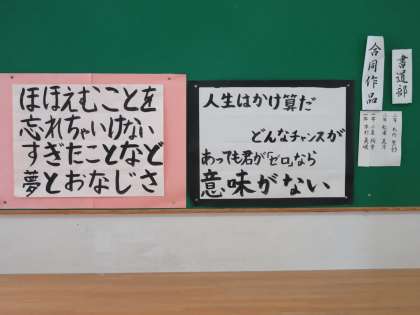 ほほえむことを
忘れちゃいけない
すぎたことなど
夢とおなじさ
人生はかけ算だ
どんなチャンスが
あっても君が「ゼロ」なら
意味がない
書道部
合同作品